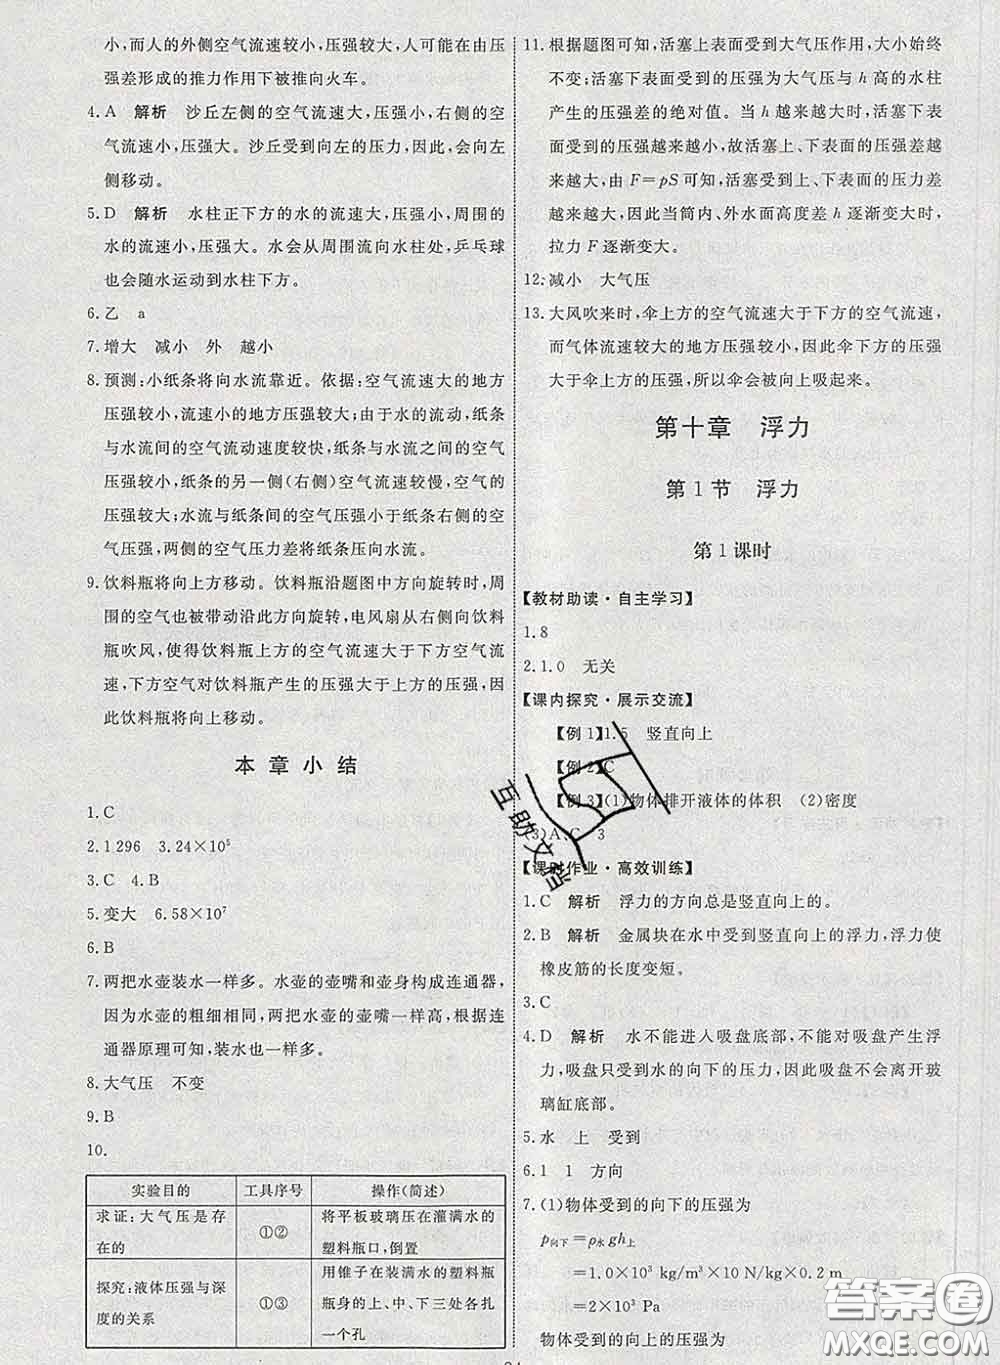 小,而人的外侧空气流速较小,压强较大,人可能在由压
强差形成的推力作用下被推向火车。
4.A 解析 沙丘左侧的空气流速大,压强小,右侧的空
气流速小,压强大。沙丘受到向左的压力,因此,会向左
侧移动。
5.D 解析 水柱正下方的水的流速大,压强小,周围的
水的流速小,压强大。水会从周围流向水柱处,乒乓球
也会随水运动到水柱下方。
6.乙 a
7.增大 减小 外 越小
8.预测:小纸条将向水流靠近。依据:空气流速大的地方
压强较小,流速小的地方压强较大;由于水的流动,纸条
与水流间的空气流动速度较快,纸条与水流之间的空气
压强较小;纸条的另一侧(右侧)空气流速较慢,空气的
压强较大;水流与纸条间的空气压强小于纸条右侧的空
气压强,两侧的空气压力差将纸条压向水流。
9.饮料瓶将向上方移动。饮料瓶沿题图中方向旋转时,周
围的空气也被带动沿此方向旋转,电风扇从右侧向饮料
瓶吹风,使得饮料瓶上方的空气流速大于下方空气流
速,下方空气对饮料瓶产生的压强大于上方的压强,因
此饮料瓶将向上移动。
本章小结
1.C
2.1 296 3.24×10⁵
3.C 4.B
5.变大 6.58×10⁷
6.B
7.两把水壶装水一样多。水壶的壶嘴和壶身构成连通器,
因为水壶的粗细相同,两把水壶的壶嘴一样高,根据连
通器原理可知,装水也一样多。
8.大气压 不变
9.B
10.
实验目的 工具序号 操作(简述)
求证:大气压是存
在的 ①② 将平板玻璃压在灌满水的
塑料瓶口,倒置
探究:液体压强与深
度的关系 ①③ 用锥子在装满水的塑料瓶
瓶身的上、中、下三处各扎
一个孔
11.根据题图可知,活塞上表面受到大气压作用,大小始终
不变;活塞下表面受到的压强为大气压与 h 高的水柱
产生的压强差的绝对值。当 h 越来越大时,活塞下表
面受到的压强越来越小,故活塞上、下表面的压强差越
来越大,由 F=pS 可知,活塞受到上、下表面的压力差
越来越大,因此当筒内、外水面高度差 h 逐渐变大时,
拉力 F 逐渐变大。
12.减小 大气压
13.大风吹来时,伞上方的空气流速大于下方的空气流速,
而气体流速较大的地方压强较小,因此伞下方的压强
大于伞上方的压强,所以伞会被向上吸起来。
第十章 浮力
第1节 浮力
第1课时
【教材助读·自主学习】
1.8
2.1.0 无关
【课内探究·展示交流】
【例1】1.5 竖直向上
【例2】C
【例3】(1)物体排开液体的体积 (2)密度
(3)A、C 3
【课时作业·高效训练】
1.C 解析 浮力的方向总是竖直向上的。
2.B 解析 金属块在水中受到竖直向上的浮力,浮力使
橡皮筋的长度变短。
3.C
4.D 解析 水不能进入吸盘底部,不能对吸盘产生浮
力,吸盘只受到水的向下的压力,因此吸盘不会离开玻
璃缸底部。
5.水 上 受到
6.1 1 方向
7.(1)物体受到的向下的压强为
p向下=ρ水gh上
=1.0×10³ kg/m³×10 N/kg×0.2 m
=2×10³ Pa
物体受到的向上的压强为
互助文档
答案圈
MXQE.COM